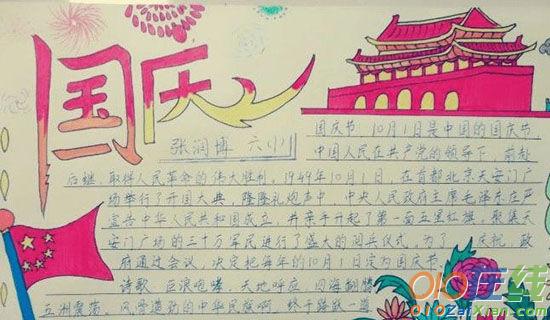 国庆
张润博 六(1)
国庆节 10月1日是中国的国庆节,
中国人民在共产党的领导下,前赴
后继,取得人民革命的伟大胜利,1949年10月1日,在首都北京天安门广
场举行了开国大典,隆隆礼炮声中,中央人民政府主席毛泽东在严
宣告中华人民共和国成立,并亲手升起了第一面五星红旗,聚集天
安门广场的三十万军民进行了盛大的阅兵仪式,为了 庆祝,政
府通过会议,决定把每年的10月1日定为国庆节
诗歌 巨浪咆哮,天地呼应 四海翻腾
五洲震荡,风雷激励的中华民族啊 终于踏
在线
ZaiXian.com